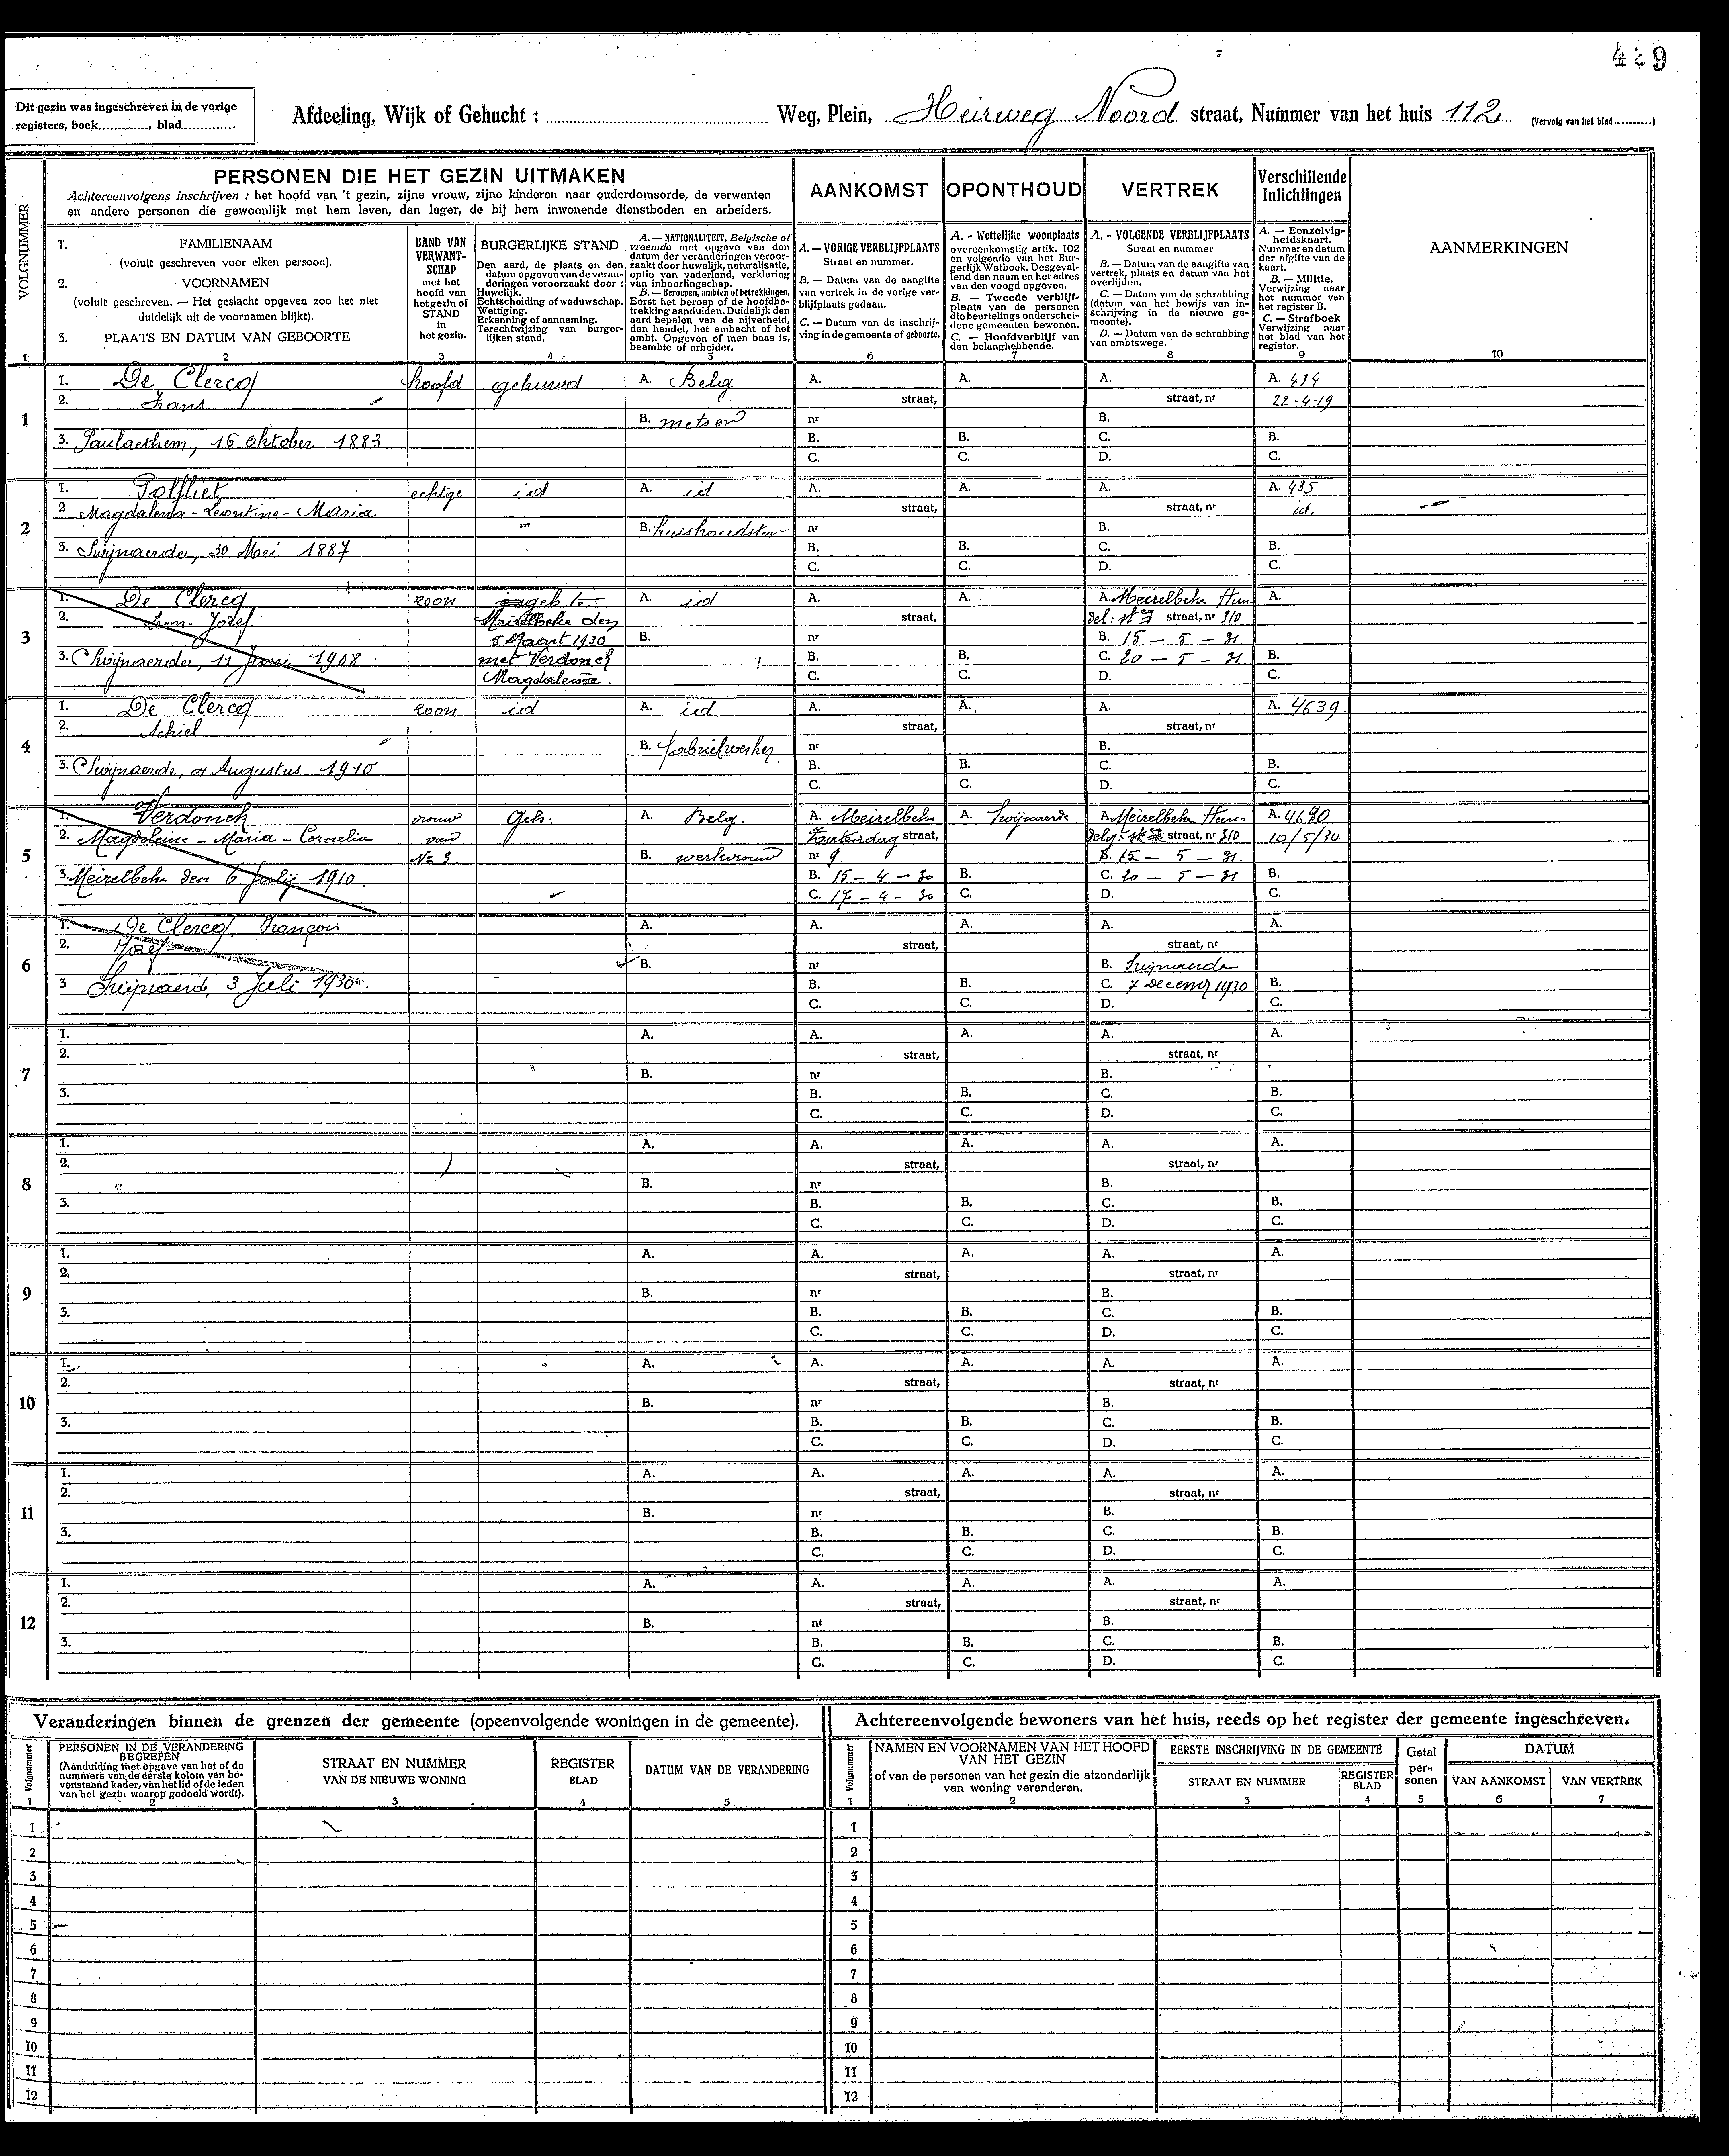 Dit gezin was ingeschreven in de vorige
registers, boek............, blad..............
Afdeeling, Wijk of Gehucht : ........ Weg, Plein, Heirweg Noord straat, Nummer van het huis 112 (Vervolg van het blad .........)
VOLGNUMMER
PERSONEN DIE HET GEZIN UITMAKEN
Achtereenvolgens inschrijven : het hoofd van 't gezin, zijne vrouw, zijne kinderen naar ouderdomsorde, de verwanten
en andere personen die gewoonlijk met hem leven, dan lager, de bij hem inwonende dienstboden en arbeiders.
AANKOMST
OPONTHOUD
VERTREK
Verschillende
Inlichtingen
AANMERKINGEN
1. FAMILIENAAM
(voluit geschreven voor elken persoon).
2. VOORNAMEN
(voluit geschreven. — Het geslacht opgeven zoo het niet
duidelijk uit de voornamen blijkt).
3. PLAATS EN DATUM VAN GEBOORTE
BAND VAN
VERWANT-
SCHAP
met het
hoofd van
het gezin of
STAND
in
het gezin.
BURGERLIJKE STAND
Den aard, de plaats en den
datum opgeven van de veran-
deringen veroorzaakt door :
Huwelijk.
Echtscheiding of weduwschap.
Wettiging.
Erkenning of aanneming.
Terechtwijzing van burger-
lijken stand.
A. — NATIONALITEIT. Belgische of
vreemde met opgave van den
datum der veranderingen veroor-
zaakt door huwelijk, naturalisatie,
optie van vaderland, verklaring
van inboorlingschap.
B. — Beroepen, ambten of betrekkingen.
Eerst het beroep of de hoofdbe-
trekking aanduiden. Duidelijk den
aard bepalen van de nijverheid,
den handel, het ambacht of het
ambt. Opgeven of men baas is,
beambte of arbeider.
A. — VORIGE VERBLIJFPLAATS
Straat en nummer.
B. — Datum van de aangifte
van vertrek in de vorige ver-
blijfplaats gedaan.
C. — Datum van de inschrij-
ving in de gemeente of geboorte.
A. - Wettelijke woonplaats
overeenkomstig artik. 102
en volgende van het Bur-
gerlijk Wetboek. Desgeval-
lend den naam en het adres
van den voogd opgeven.
B. — Tweede verblijf-
plaats van de personen
die beurtelings onderschei-
dene gemeenten bewonen.
C. — Hoofdverblijf van
den belanghebbende.
A. - VOLGENDE VERBLIJFPLAATS
Straat en nummer
B. — Datum van de aangifte van
vertrek, plaats en datum van het
overlijden.
C. — Datum van de schrabbing
(datum van het bewijs van in-
schrijving in de nieuwe ge-
meente).
D. — Datum van de schrabbing
van ambtswege.
A. — Eenzelvig-
heidskaart.
Nummer en datum
der afgifte van de
kaart.
B. — Militie.
Verwijzing naar
het nummer van
het register B.
C. — Strafboek
Verwijzing naar
het blad van het
register.
1 2 3 4 5 6 7 8 9 10
1
1. De Clercq hoofd gehuwd A. Belg A. A. A. A. 434
2. Frans straat, straat, nr 22-4-19
B. metser nr B.
3. Paulaethem, 16 oktober 1883 B. B. C. B.
C. C. D. C.
2
1. Polfliet echtge id A. id A. A. A. A. 435
2 Magdalena - Leontine - Maria straat, straat, nr id.
B. huishoudster nr B.
3. Swijnaerde, 30 Mei 1887 B. B. C. B.
C. C. D. C.
3
1. De Clercq zoon geh te A. id A. A. A. Meirelbeke Hun- A.
2. Leon - Jozef Meirelbeke den straat, straat, nr 310
5 Maart 1930 B. nr B. 15 - 5 - 31
3. Swijnaerde, 11 Juni 1908 met Verdonck B. B. C. 20 - 5 - 31 B.
Magdalena C. C. D. C.
4
1. De Clercq zoon id A. id A. A. A. A. 4639
2. Achiel straat, straat, nr
B. fabriekwerker nr B.
3. Swijnaerde, 4 Augustus 1910 B. B. C. B.
C. C. D. C.
5
1. Verdonck vrouw Geh. A. Belg. A. Meirelbeke A. Swijnaerde A. Meirelbeke Hun- A. 4680
2. Magdaleine - Maria - Cornelia van straat, straat, nr 310 10/5/30
No 3. B. werkvrouw nr 9. B. 15 - 5 - 31.
3. Meirelbeke den 6 Julij 1910. B. 15 - 4 - 30 B. C. 20 - 5 - 31 B.
C. 17 - 4 - 30 C. D. C.
6
1. De Clercq François A. A. A. A. A.
2. Jozef straat, straat, nr
B. nr B. Swijnaerde
3 Swijnaerde, 3 Juli 1930 B. B. C. 7 decemb 1930 B.
C. C. D. C.
7
1. A. A. A. A. A.
2. straat, straat, nr
B. nr B.
3. B. B. C. B.
C. C. D. C.
8
1. A. A. A. A. A.
2. straat, straat, nr
B. nr B.
3. B. B. C. B.
C. C. D. C.
9
1. A. A. A. A. A.
2. straat, straat, nr
B. nr B.
3. B. B. C. B.
C. C. D. C.
10
1. A. A. A. A. A.
2. straat, straat, nr
B. nr B.
3. B. B. C. B.
C. C. D. C.
11
1. A. A. A. A. A.
2. straat, straat, nr
B. nr B.
3. B. B. C. B.
C. C. D. C.
12
1. A. A. A. A. A.
2. straat, straat, nr
B. nr B.
3. B. B. C. B.
C. C. D. C.
Veranderingen binnen de grenzen der gemeente (opeenvolgende woningen in de gemeente).
Volgnummer
PERSONEN IN DE VERANDERING
BEGREPEN
(Aanduiding met opgave van het of de
nummers van de eerste kolom van bo-
venstaand kader, van het lid of de leden
van het gezin waarop gedoeld wordt).
STRAAT EN NUMMER
VAN DE NIEUWE WONING
REGISTER
BLAD
DATUM VAN DE VERANDERING
1 2 3 4 5
1
2
3
4
5
6
7
8
9
10
11
12
Achtereenvolgende bewoners van het huis, reeds op het register der gemeente ingeschreven.
Volgnummer
NAMEN EN VOORNAMEN VAN HET HOOFD
VAN HET GEZIN
of van de personen van het gezin die afzonderlijk
van woning veranderen.
EERSTE INSCHRIJVING IN DE GEMEENTE
STRAAT EN NUMMER
REGISTER
BLAD
Getal
per-
sonen
DATUM
VAN AANKOMST
VAN VERTREK
1 2 3 4 5 6 7
1
2
3
4
5
6
7
8
9
10
11
12